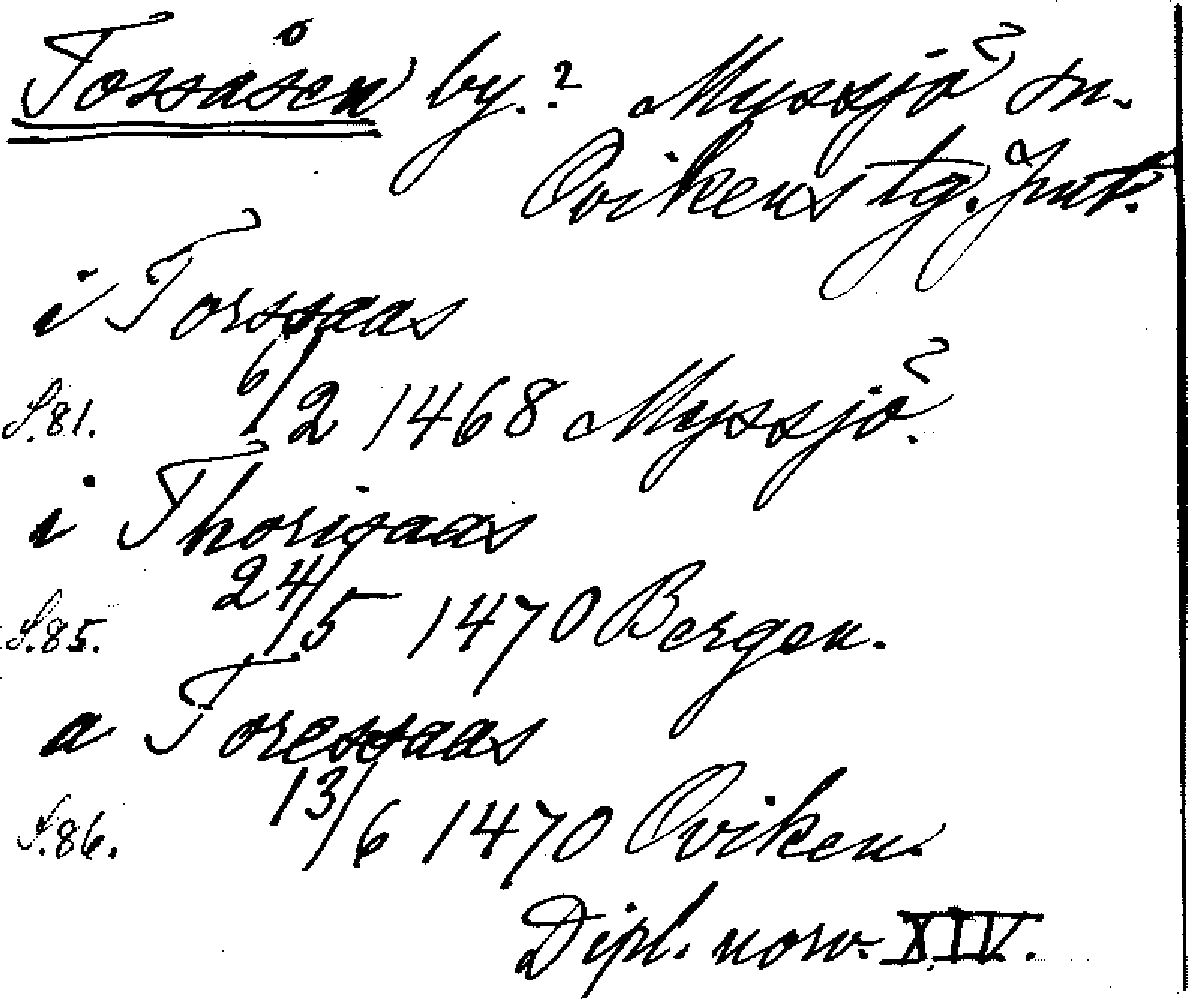 Tossåsen by.? Myssjö sn.
Ovikens tg. Jmt.
i Torssaas
S.81. 6/2 1468 Myssjö.
i Thorisaas
S.85. 24/5 1470 Bergen.
a Toressaas
S.86. 13/6 1470 Oviken.
Dipl. norv. XIV.